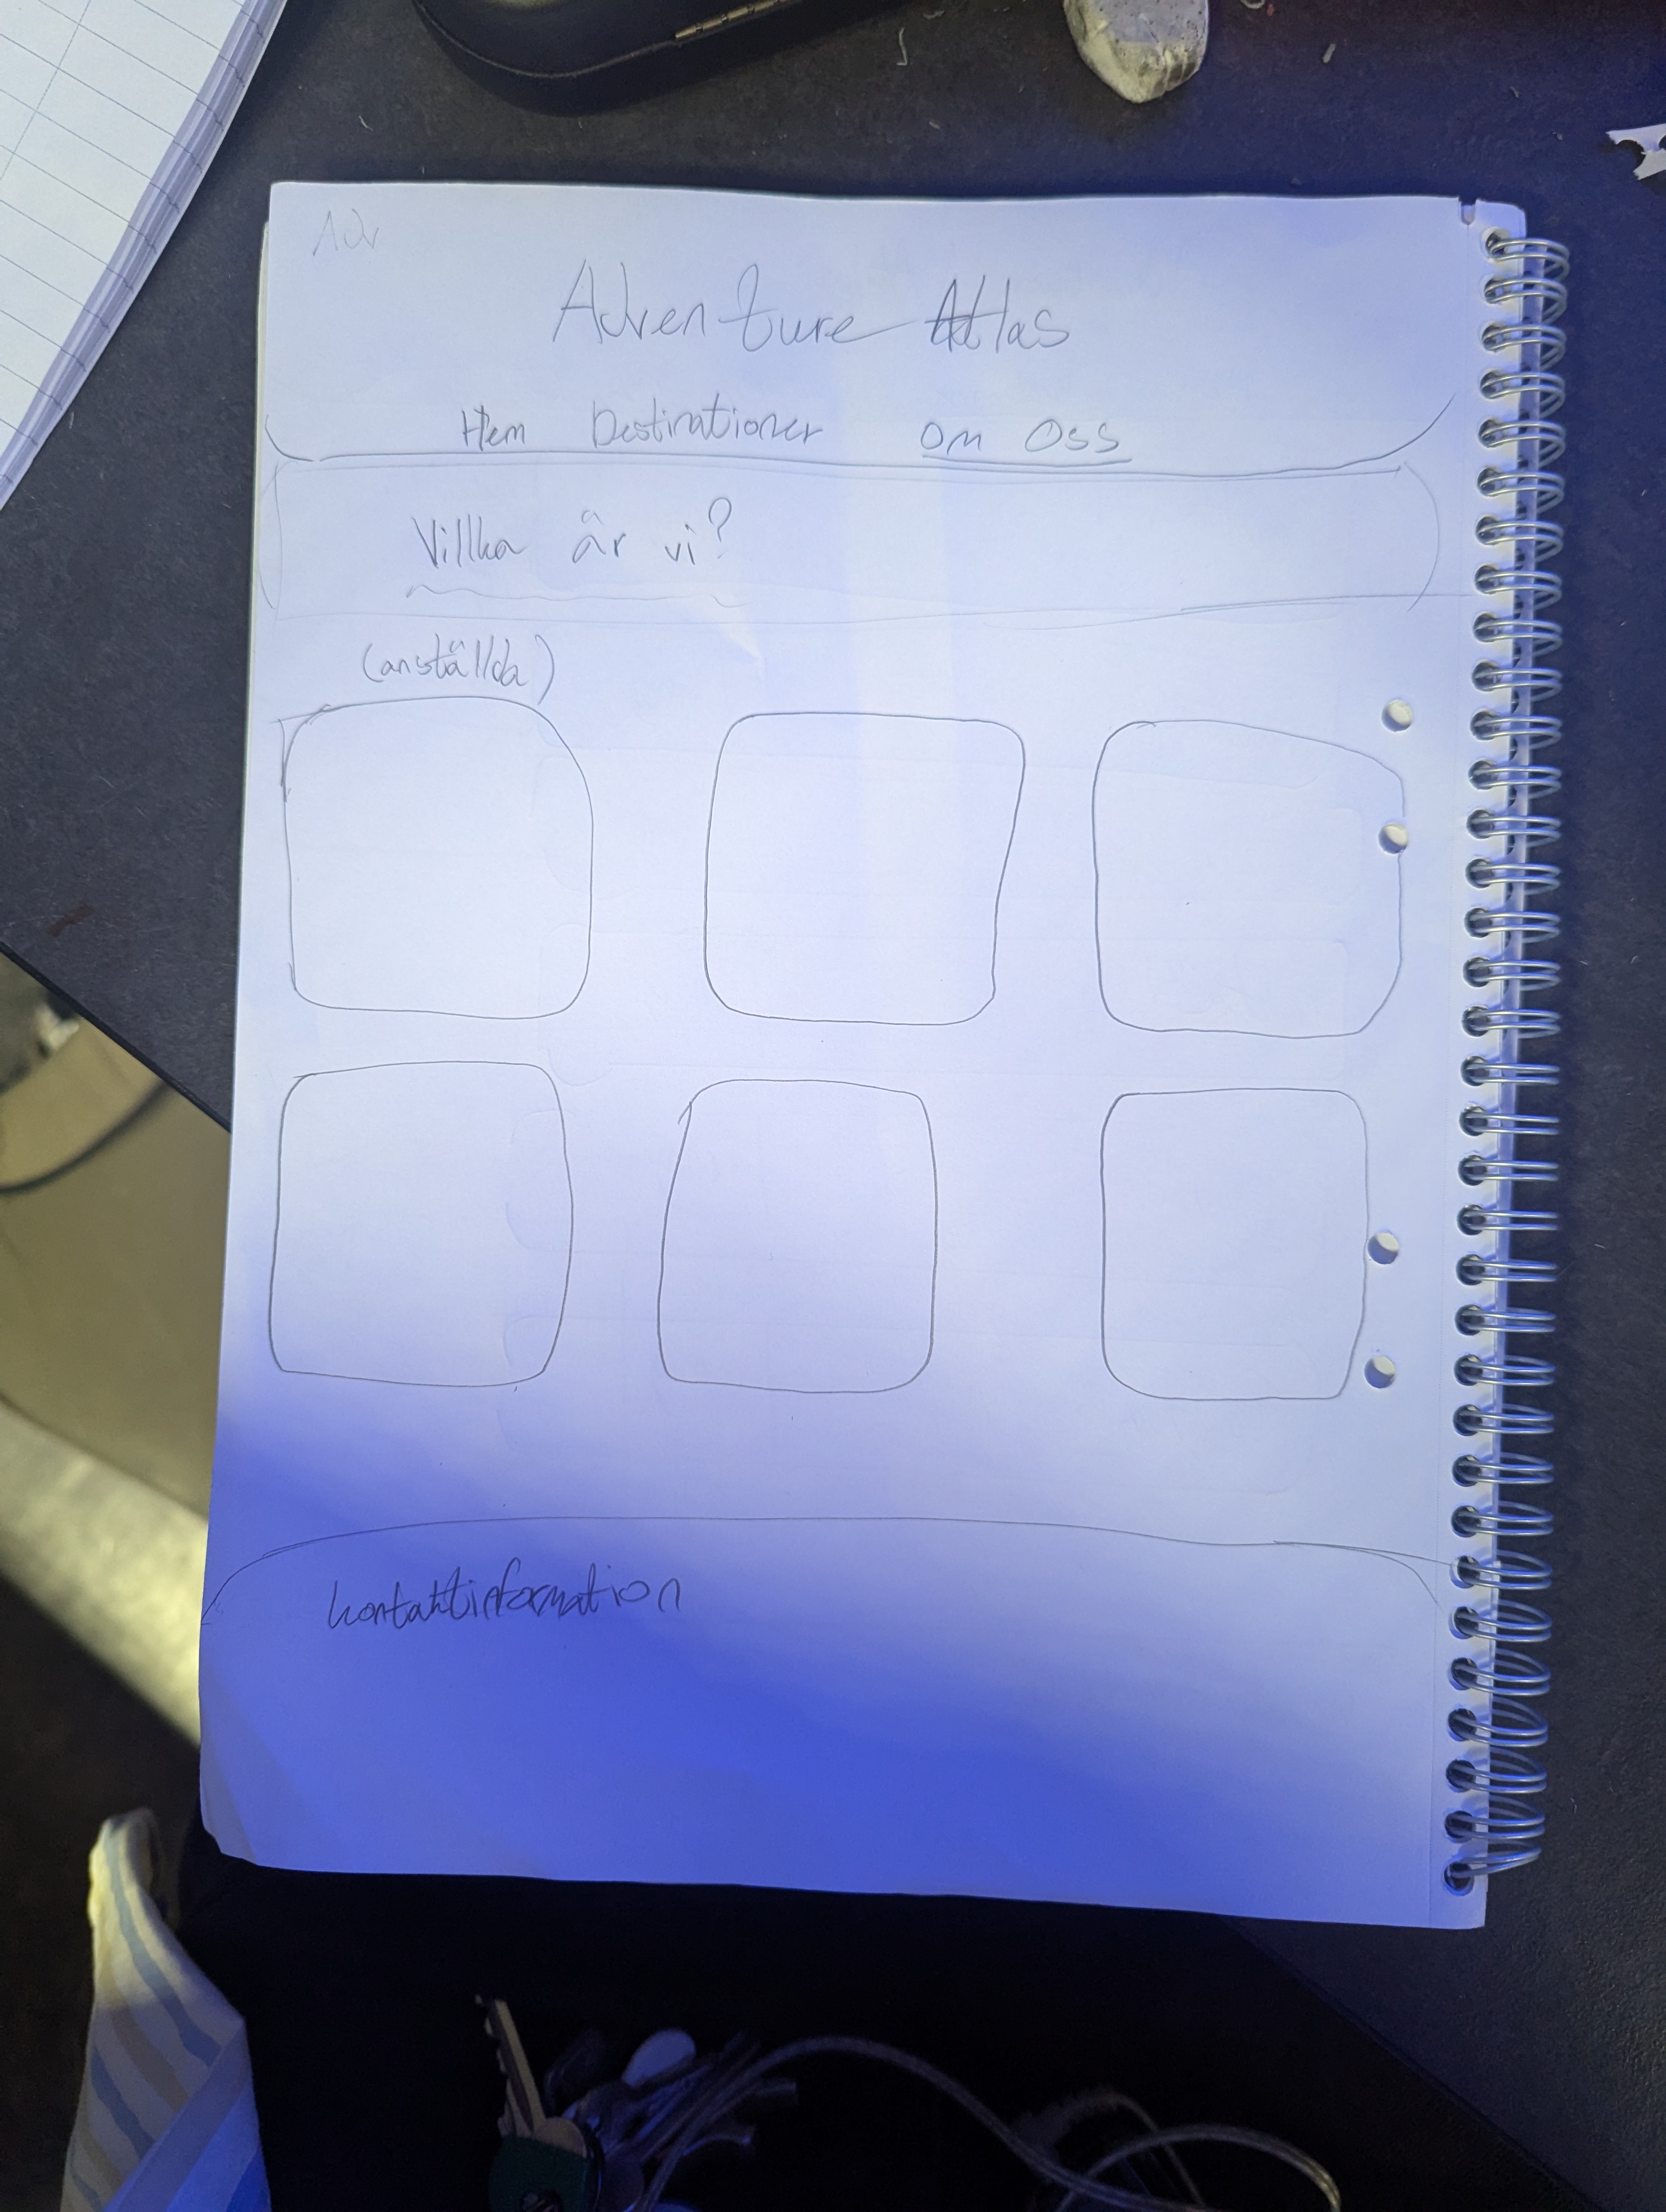 Adv
Adventure Atlas
Hem Destinationer Om Oss
Villka är vi?
(anställda)
kontaktinformation